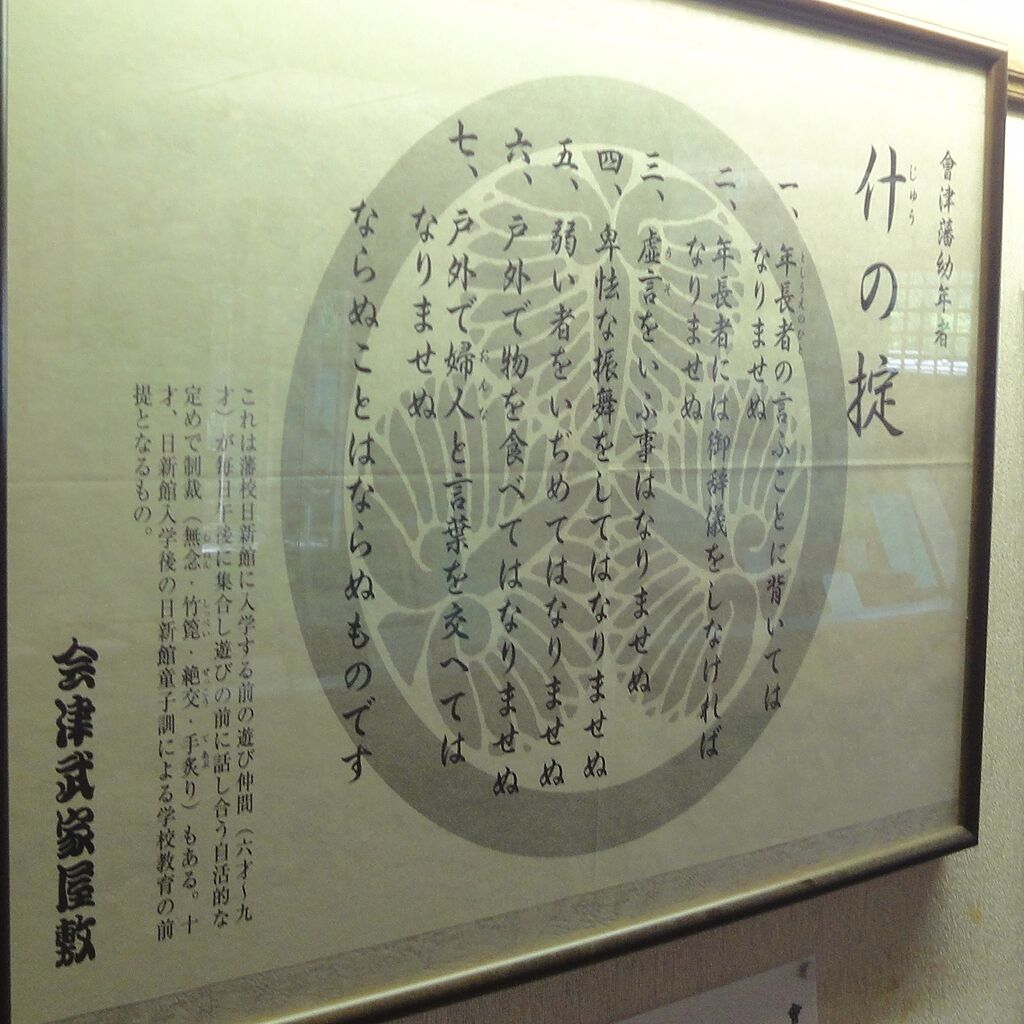 會津藩幼年者
什の掟
じゅう
一、年長者の言ふことに背いては
としうえのひと
なりませぬ
二、年長者には御辞儀をしなければ
なりませぬ
三、虚言をいふ事はなりませぬ
うそ
四、卑怯な振舞をしてはなりませぬ
五、弱い者をいぢめてはなりませぬ
六、戸外で物を食べてはなりませぬ
七、戸外で婦人と言葉を交へては
おんな
なりませぬ
ならぬことはならぬものです
これは藩校日新館に入学する前の遊び仲間（六才〜九
才）が毎日午後に集合し遊びの前に話し合う自活的な
定めで制裁（無念・竹篦・絶交・手炙り）もある。十
むねん しっぺい ぜっこう てあぶ
才、日新館入学後の日新館童子訓による学校教育の前
提となるもの。
会津武家屋敷